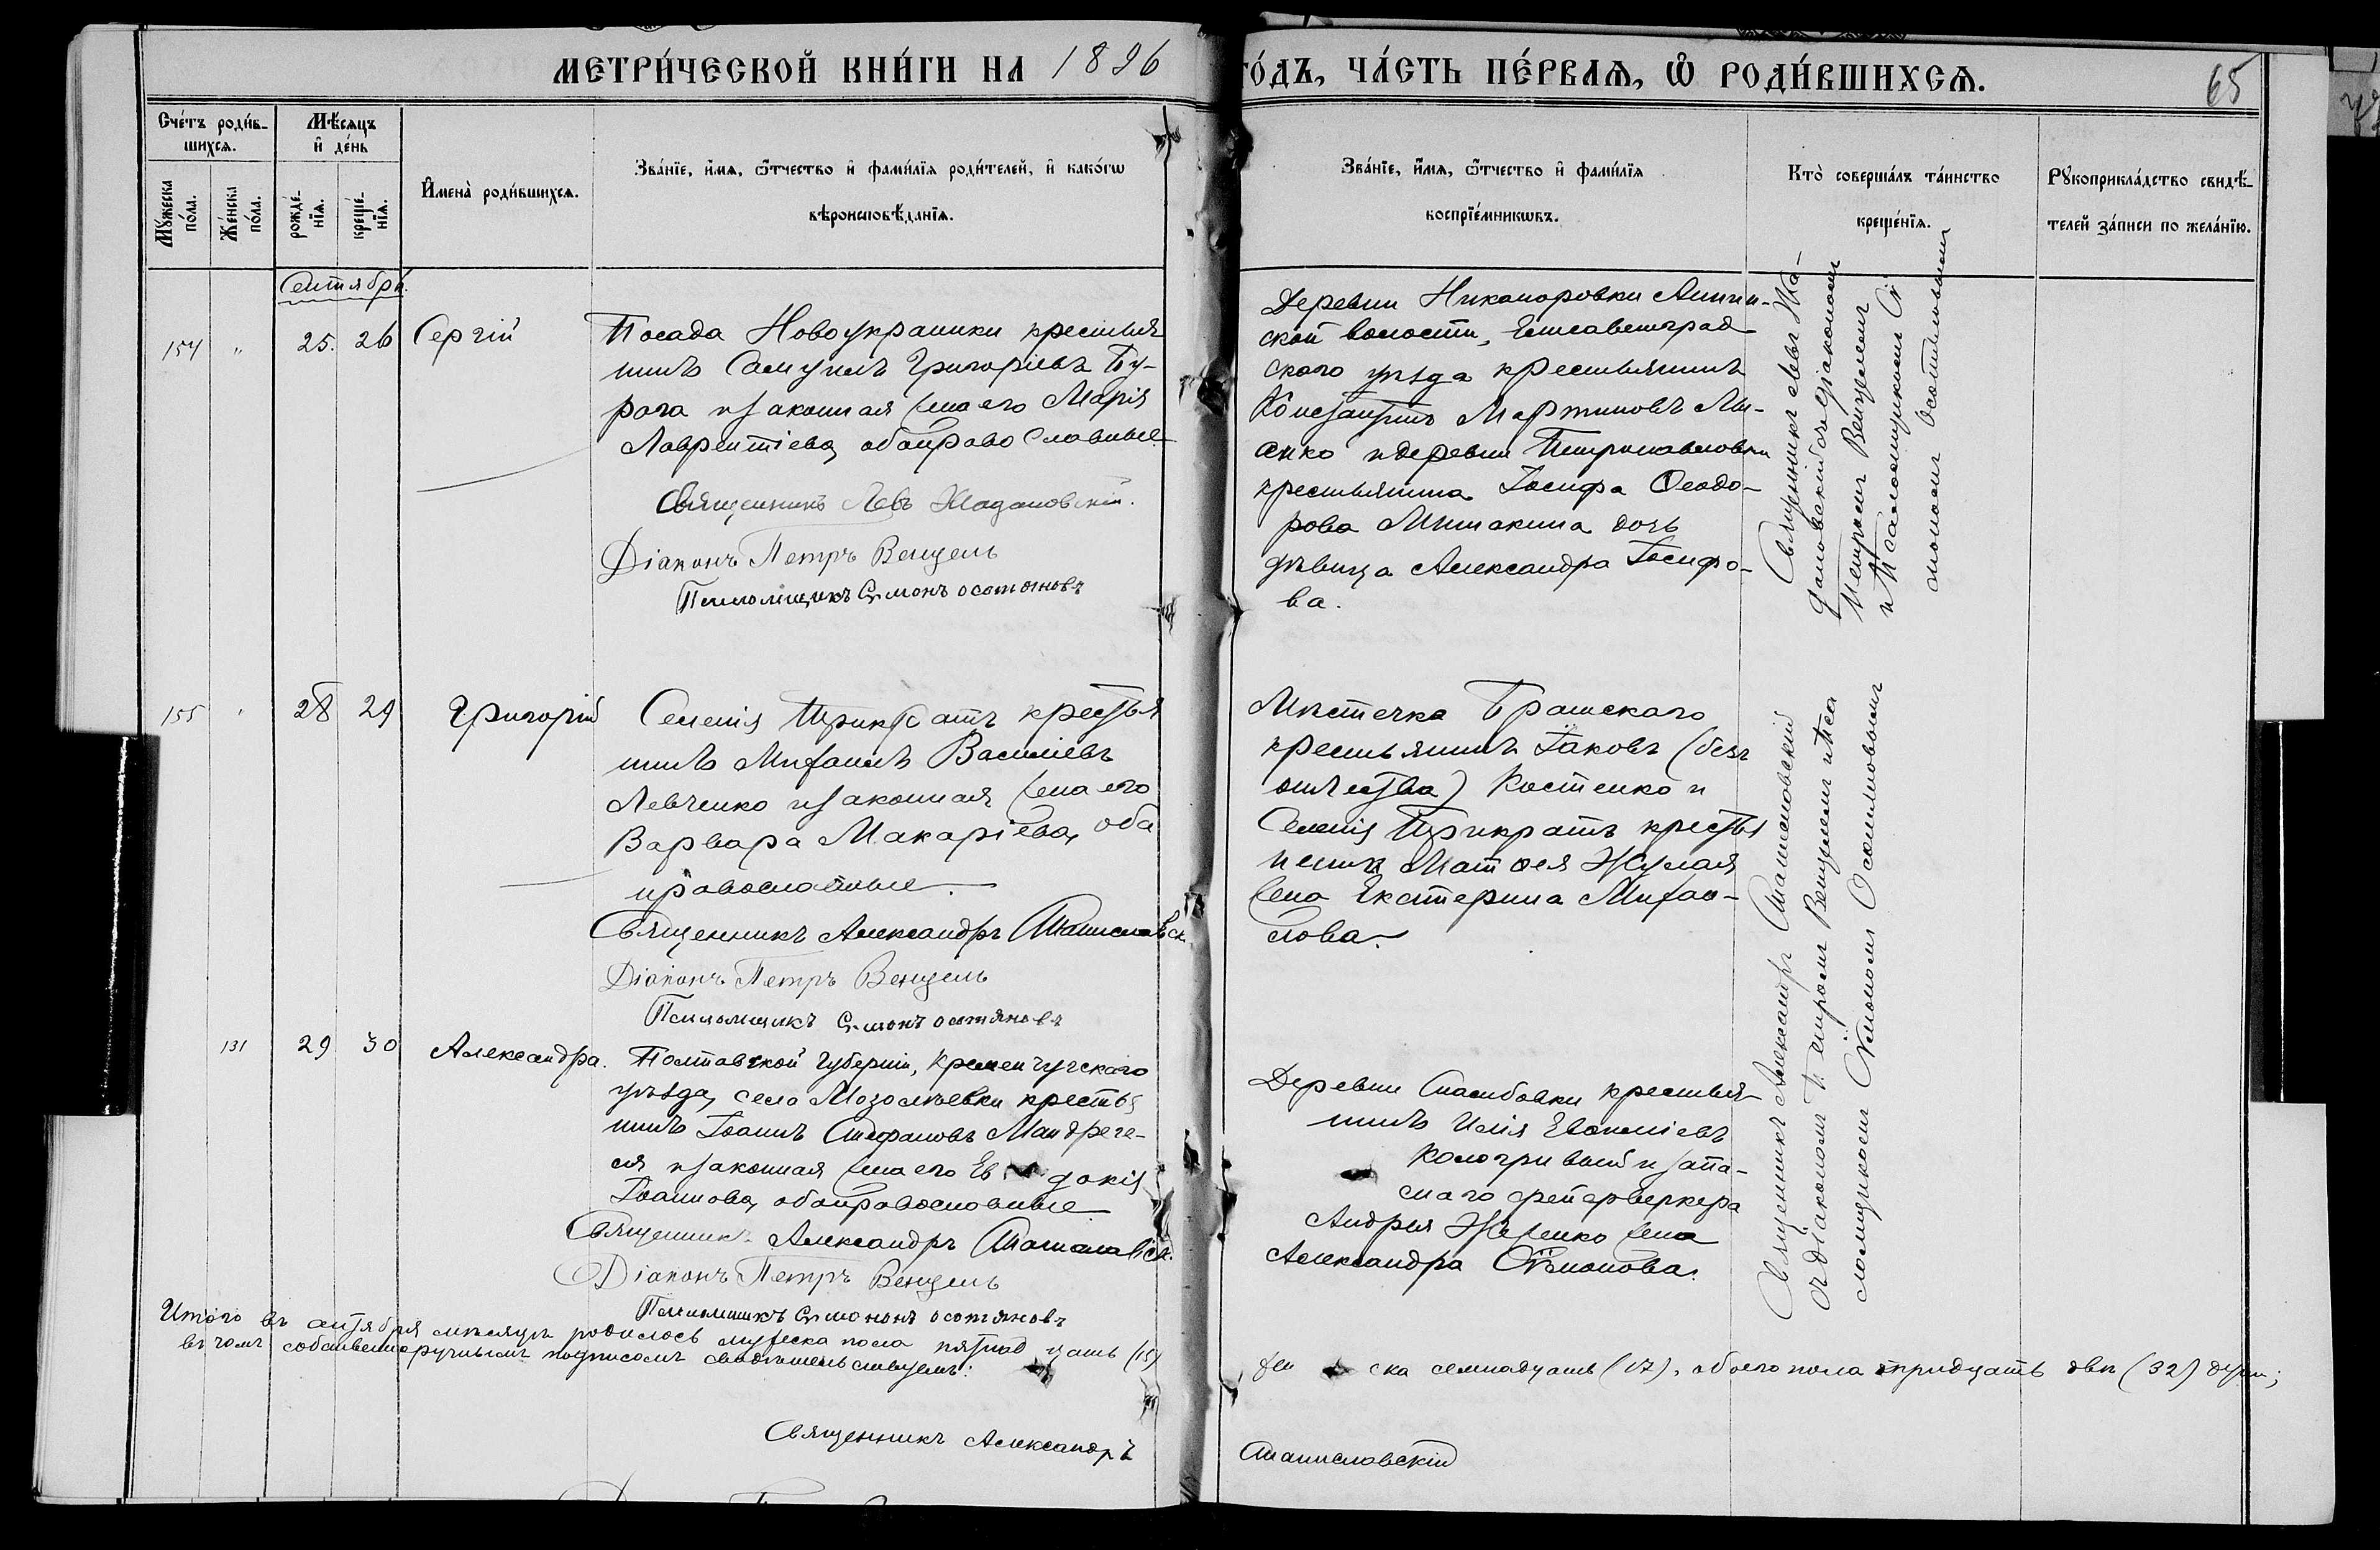 МЕТРИ́ЧЕСКОЙ КНИ́ГИ НА 1896
ГО́ДЪ, ЧА́СТЬ ПЕ́РВАѦ, Ѽ РОДИ́ВШИХСѦ.
65
Сче́тъ роди́в-
шихсѧ.
Мѣ́сѧцъ
и҆ де́нь
Мꙋ́жеска
по́ла.
Же́нска
по́ла.
рожде́-
нїѧ.
креще́-
нїѧ.
И҆мена̀ роди́вшихсѧ.
Зва́нїе, и҆́мѧ, ѻ҆́тчество и҆ фами́лїѧ роди́телей, и҆ како́гѡ
вѣроисповѣ́данїѧ.
Зва́нїе, и҆́мѧ, ѻ҆́тчество и҆ фами́лїѧ
воспрїе́мникѡвъ.
Кто̀ соверша́лъ та́инство
креще́нїѧ.
Рꙋкоприкла́дство свидѣ́-
телей за́писи по жела́нїю.
Сентября.
154 " 25. 26 Сергій
Посада Новоукраинки крестья
нинъ Самуилъ Григоріевъ Бу-
рага и законная жена его Марія
Лаврентіева, оба православные
Священникъ Левъ Ждановскій.
Діаконъ Петръ Венцель
Псаломщикъ Симонъ Осотяновъ
Деревни Никаноровки Аннин-
ской волости, Елисаветград-
скаго уѣзда крестьянинъ
Константинъ Мартиновъ
и деревни Петропавловки
крестьянина Іосифа Ѳеодо-
рова Мишакина дочь
дѣвица Александра Іосифо-
ва.
Священникъ Левъ Жда-
новскій съ діакономъ
Петромъ Венцелемъ
и Псаломщикомъ Си
мономъ Осотяновымъ
155 " 28 29 Григорій
Селенія Трикратъ крестья
нинъ Михаилъ Василіевъ
Левченко и законная жена его
Варвара Макаріева, оба
православные.
Священникъ Александръ Станиславск.
Діаконъ Петръ Венцель
Псаломщикъ Симонъ Осотяновъ
Мѣстечка Братскаго
крестьянинъ Іаковъ (безъ
отчества) Костенко и
Селенія Трикратъ крестья
нина Матѳея Жулая
жена Екатерина Михаи-
лова.
Священникъ Александръ Станиславскій
съ діакономъ Петромъ Венцелемъ и Пса
ломщикомъ Симономъ Осотяновымъ
131 29 30 Александра.
Полтавской губерніи, Кременчугскаго
уѣзда, села Мозолѣевки крестья
нинъ Іоаннъ Стефановъ Мандреге-
ля и законная жена его Евдокія
Іоаннова, оба православные
Священникъ Александръ Станиславск.
Діаконъ Петръ Венцель
Псаломщикъ Симонъ Осотяновъ
Деревни Спасибовки крестья-
нинъ Илія Евѳиміевъ
Кологривый и запа-
снаго фейерверкера
Андрея жена
Александра Симонова.
Итого въ сентябрѣ мѣсяцѣ родилось мужеска пола пятнадцать (15)
женска семнадцать (17), обоего пола тридцать два (32) души;
въ чемъ собственноручнымъ подписомъ свидѣтельствуемъ:
Священникъ Александръ
Станиславскій